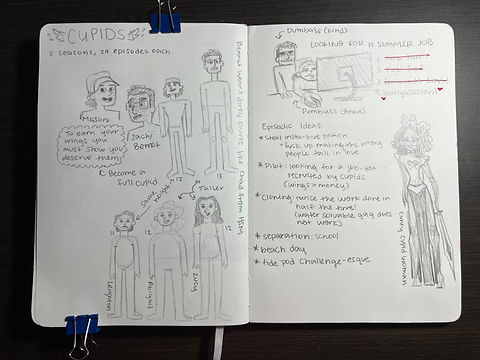 CUPIDS
2 seasons, 24 episodes each
Mason
Zach/
Bennet
To earn your
wings you
must show you
deserve them
Become a
full cupid
12
13
same
height
Taller
11
12
12
Leighton
Abigail
Lucy
Dumbass (kind)
LOOKING FOR A SUMMER JOB
Dumbass (Brave)
Episodic Ideas:
* Steal insta-love potion
* fuck up making the wrong
people fall in love
* Pilot: looking for a job, get
recruited by Cupids
(wings > money)
* Cloning: twice the work done in
half the time!
(water soluble gag does
not work)
* separation: school
* beach day
* tide pod challenge-esque
cupid woman